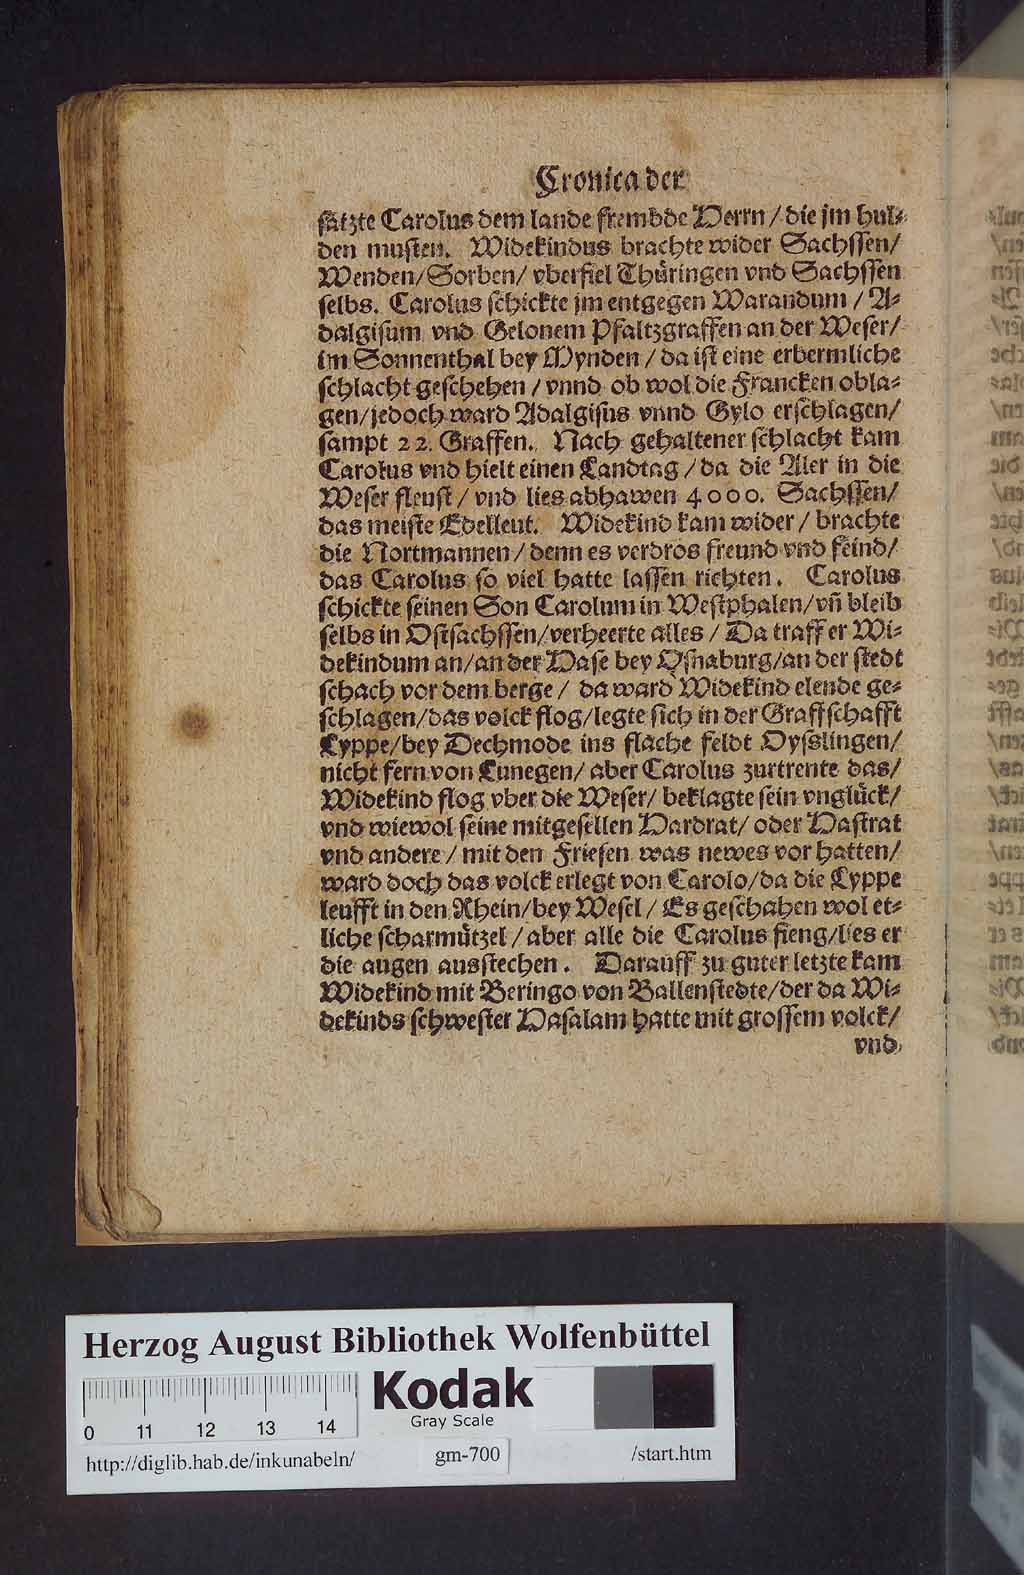 Cronica der
sätzte Carolus dem lande frembde Herrn / die jm hul⸗
den musten. Widekindus brachte wider Sachssen/
Wenden/Sorben/ vberfiel Thüringen vnd Sachssen
selbs. Carolus schickte jm entgegen Warandum / A⸗
dalgisum vnd Gelonem Pfaltzgraffen an der Weser/
im Sonnenthal bey Mynden / da ist eine erbermliche
schlacht geschehen / vnnd ob wol die Francken obla⸗
gen/jedoch ward Adalgisus vnnd Gylo erschlagen/
sampt 22. Graffen. Nach gehaltener schlacht kam
Carolus vnd hielt einen Landtag / da die Aler in die
Weser fleust / vnd lies abhawen 4000. Sachssen/
das meiste Edelleut. Widekind kam wider / brachte
die Nortmannen / denn es verdros freund vnd feind/
das Carolus so viel hatte lassen richten. Carolus
schickte seinen Son Carolum in Westphalen/vñ bleib
selbs in Ostsachssen/verheerte alles / Da traff er Wi⸗
dekindum an/an der Hase bey Osnaburg/an der stedt
schach vor dem berge / da ward Widekind elende ge⸗
schlagen/das volck flog/legte sich in der Graffschafft
Lyppe/bey Dechmode ins flache feldt Hysslingen/
nicht fern von Lunegen/ aber Carolus zurtrente das/
Widekind flog vber die Weser/ beklagte sein vnglück/
vnd wiewol seine mitgesellen Hardrat/ oder Hastrat
vnd andere / mit den Friesen was newes vor hatten/
ward doch das volck erlegt von Carolo/da die Lyppe
leufft in den Rhein/bey Wesel / Es geschahen wol et⸗
liche scharmützel / aber alle die Carolus fieng/lies er
die augen ausstechen. Darauff zu guter letzte kam
Widekind mit Beringo von Ballenstedte/der da Wi⸗
dekinds schwester Hasalam hatte mit grossem volck/
vnd
Herzog August Bibliothek Wolfenbüttel
0 11 12 13 14
Kodak
Gray Scale
http://diglib.hab.de/inkunabeln/ gm-700 /start.htm